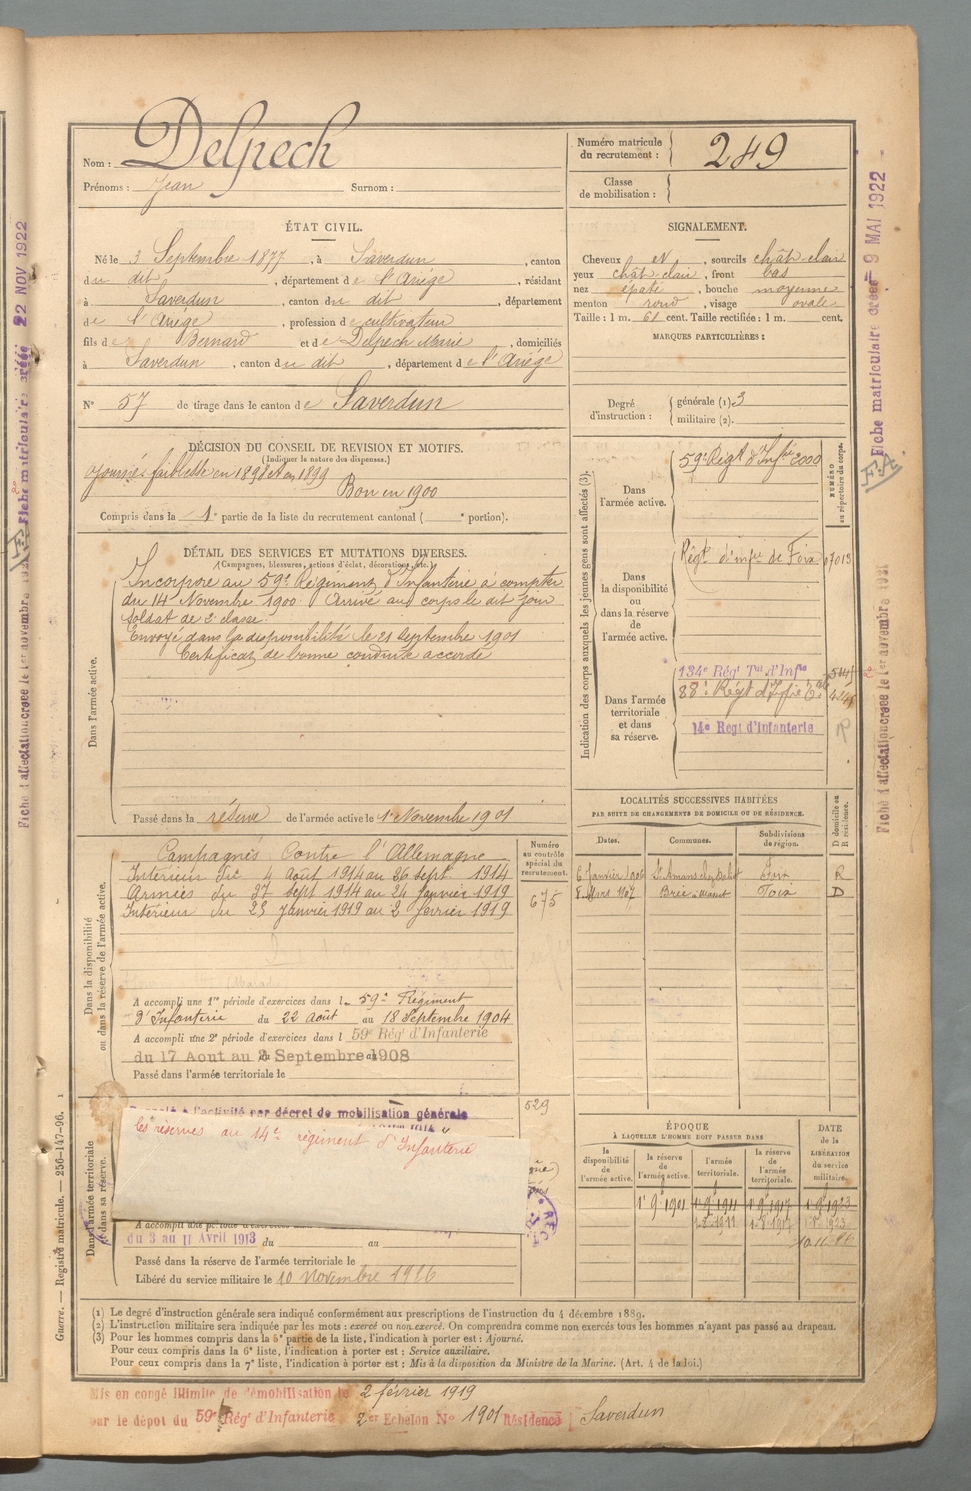 Nom : Delpech
Prénoms : Jean Surnom :
Numéro matricule du recrutement : 249
Classe de mobilisation :
ÉTAT CIVIL.
Né le 3 Septembre 1877, à Saverdun, canton
du dit, département de l'Ariège, résidant
à Saverdun, canton du dit, département
de l'Ariège, profession de cultivateur
fils de Bernard et de Delpech Marie, domiciliés
à Saverdun, canton du dit, département de l'Ariège
N° 57 de tirage dans le canton de Saverdun
SIGNALEMENT.
Cheveux et, sourcils chât clair
yeux chât clair, front bas
nez épaté, bouche moyenne
menton rond, visage ovale
Taille : 1 m. 61 cent. Taille rectifiée : 1 m. cent.
MARQUES PARTICULIÈRES :
Degré d'instruction : générale (1) 3
militaire (2).
DÉCISION DU CONSEIL DE REVISION ET MOTIFS.
(Indiquer la nature des dispenses.)
Ajourné faiblesse en 1898 et en 1899
Bon en 1900
Compris dans la 1e partie de la liste du recrutement cantonal ( e portion).
DÉTAIL DES SERVICES ET MUTATIONS DIVERSES.
(Campagnes, blessures, actions d'éclat, décorations, etc.)
Dans l'armée active.
Incorporé au 59e Régiment d'Infanterie à compter
du 14 Novembre 1900. Arrivé au corps le dit jour
soldat de 2e classe.
Envoyé dans la disponibilité le 21 septembre 1901
Certificat de bonne conduite accordé
Passé dans la réserve de l'armée active le 1er Novembre 1901
Indication des corps auxquels les jeunes gens sont affectés (3).
NUMÉRO au répertoire du corps.
Dans l'armée active.
59e Régt d'Infie 2000
Dans la disponibilité ou dans la réserve de l'armée active.
Régt d'infie de Foix 07013
Dans l'armée territoriale et dans sa réserve.
134e Régt Tal d'Infie
88e Régt d'Infie
14e Regt d'Infanterie
R
LOCALITÉS SUCCESSIVES HABITÉES
PAR SUITE DE CHANGEMENTS DE DOMICILE OU DE RÉSIDENCE.
Dates. Communes. Subdivisions de région. D domicile ou R résidence.
6 janvier St Amans Foix R
8 Mars 1907 Brie Foix D
Dans la disponibilité ou dans la réserve de l'armée active.
Numéro au contrôle spécial du recrutement.
675
Campagnes Contre l'Allemagne
Intérieur du 4 Août 1914 au 26 Sept 1914
Armées du 27 Sept 1914 au 24 Janvier 1919
Intérieur du 25 Janvier 1919 au 2 février 1919
A accompli une 1re période d'exercices dans le 59e Régiment
d'Infanterie du 22 août au 18 Septembre 1904
A accompli une 2e période d'exercices dans l 59e Régt d'Infanterie
du 17 Aout au Septembre 1908
Passé dans l'armée territoriale le
Dans l'armée territoriale et dans sa réserve.
à l'activité par décret de mobilisation générale
529
les réserves au 14e régiment d'Infanterie
A accompli une période d'exercices dans
du 3 au 11 Avril 1913 du au
Passé dans la réserve de l'armée territoriale le
Libéré du service militaire le 10 novembre 1926
ÉPOQUE
À LAQUELLE L'HOMME DOIT PASSER DANS
la disponibilité de l'armée active. la réserve de l'armée active. l'armée territoriale. la réserve de l'armée territoriale. DATE de la LIBÉRATION du service militaire.
1er 9e 1901 1er 9e 1911 1er 9e 1917 1er 9e 1923
(1) Le degré d'instruction générale sera indiqué conformément aux prescriptions de l'instruction du 4 décembre 1889.
(2) L'instruction militaire sera indiquée par les mots : exercé ou non exercé. On comprendra comme non exercés tous les hommes n'ayant pas passé au drapeau.
(3) Pour les hommes compris dans la 5e partie de la liste, l'indication à porter est : Ajourné.
Pour ceux compris dans la 6e liste, l'indication à porter est : Service auxiliaire.
Pour ceux compris dans la 7e liste, l'indication à porter est : Mis à la disposition du Ministre de la Marine. (Art. 4 de la loi.)
Mis en congé illimité de démobilisation le 2 février 1919
par le dépot du 59e Régt d'Infanterie 2er Echelon N° 1901 Résidence Saverdun
Guerre. — Registre matricule. — 256-147-96.
22 NOV 1922
Fiche matriculaire créée
Fiche d'affectation créée le 1er novembre
Fiche matriculaire créée 9 MAI 1922
F.A
Fiche d'affectation créée le 1er novembre